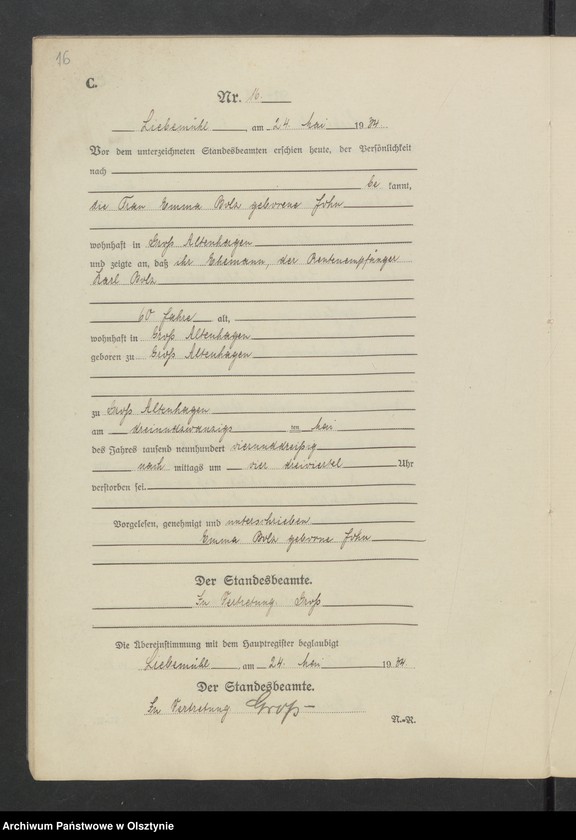 16
C.
Nr. 16.
Liebemühl, am 24. Mai 1934.
Vor dem unterzeichneten Standesbeamten erschien heute, der Persönlichkeit
nach
be kannt,
die Frau Emma Bolz geborene John
wohnhaft in Groß Altenhagen
und zeigte an, daß ihr Ehemann, der Rentenempfänger
Karl Bolz
60 Jahre alt,
wohnhaft in Groß Altenhagen
geboren zu Groß Altenhagen
zu Groß Altenhagen
am dreiundzwanzigs ten Mai
des Jahres tausend neunhundert vierunddreißig
nach mittags um vier dreiviertel Uhr
verstorben sei.
Vorgelesen, genehmigt und unterschrieben
Emma Bolz geborne John
Der Standesbeamte.
In Vertretung. Groß
Die Übereinstimmung mit dem Hauptregister beglaubigt
Liebemühl, am 24. Mai 1934.
Der Standesbeamte.
In Vertretung Groß
N.-R.
Archiwum Państwowe w Olsztynie